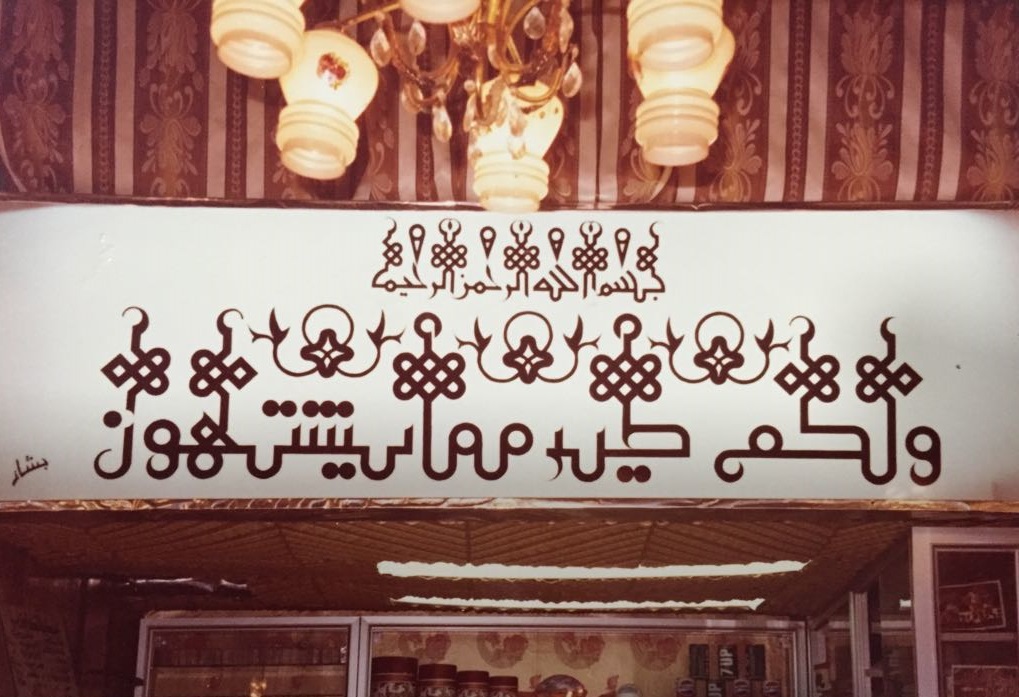 بسم الله الرحمن الرحيم
ولكم طير مما يشتهون
بشار
7UP